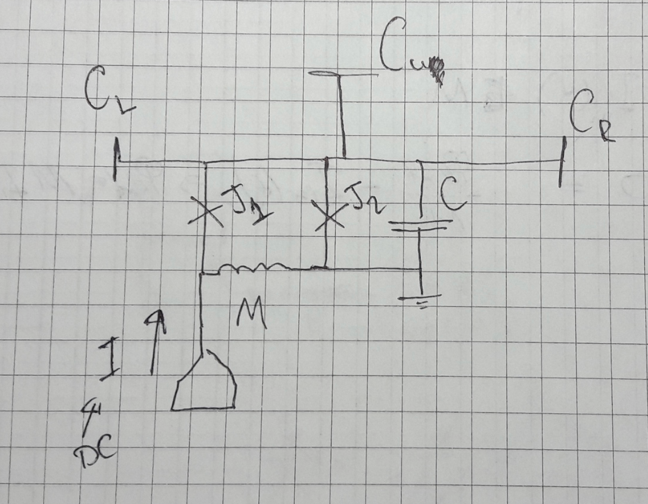 C
C_L
C_R
J_1
J_2
C
M
I
DC